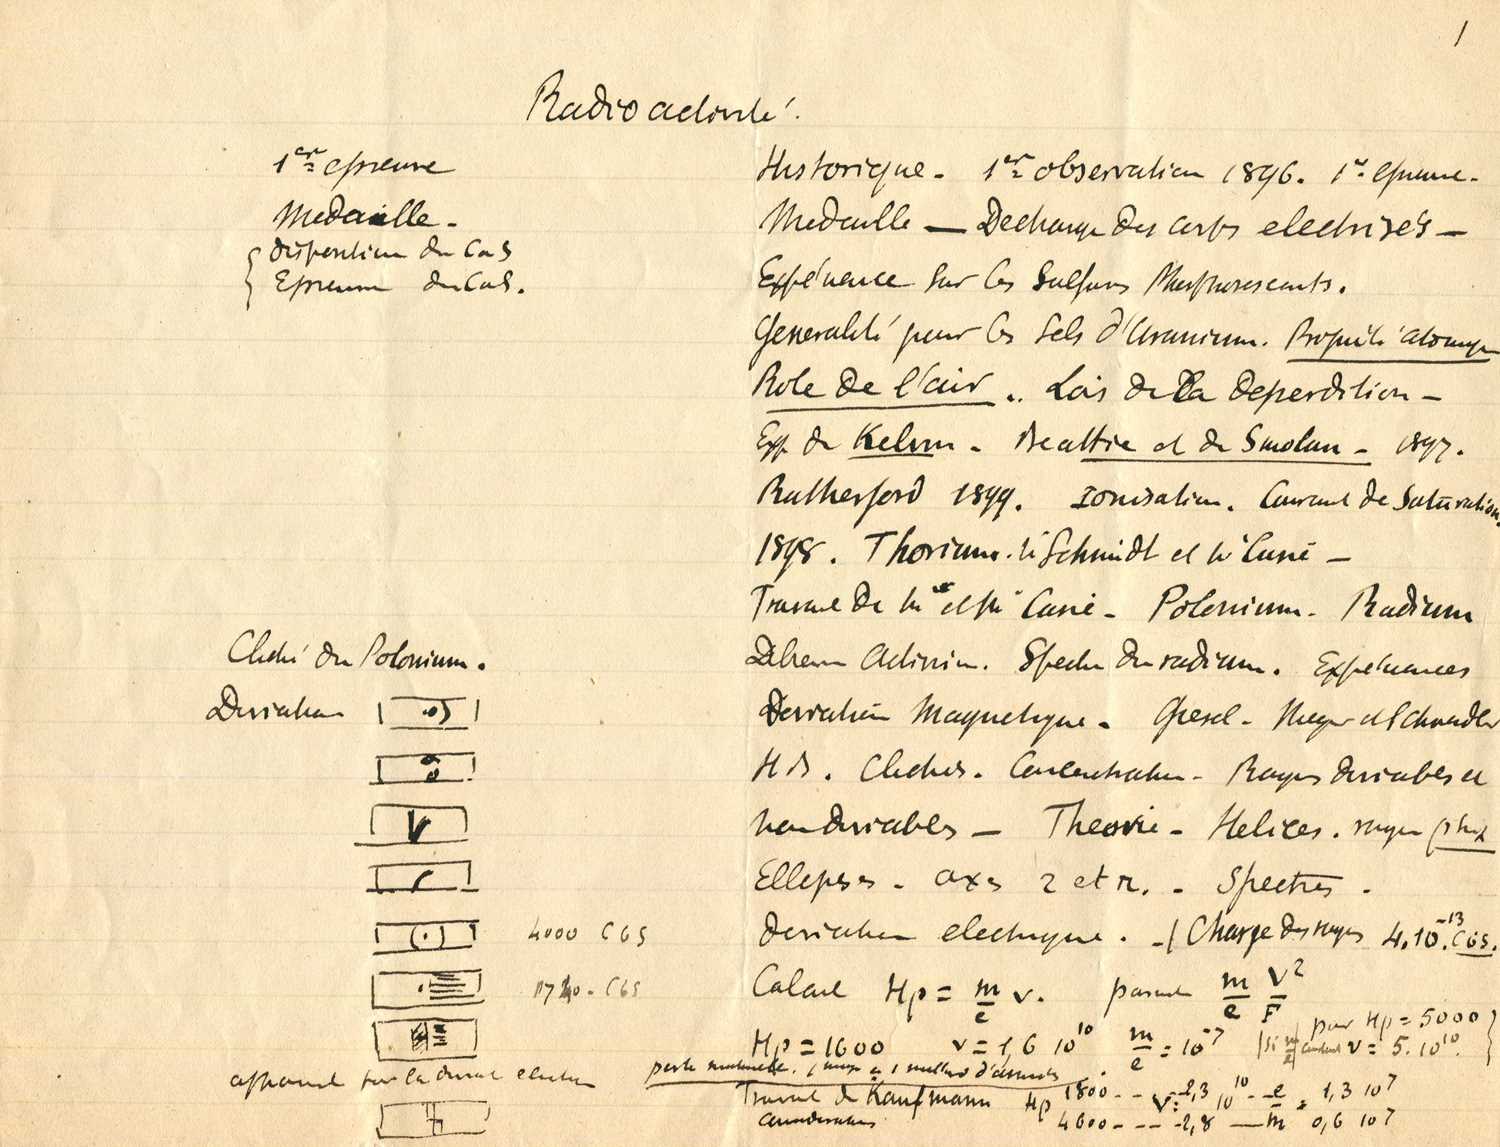 1
Radioactivité.
1ère epreuve
Medaille -
disposition du CaS
Epreuve du CaS.
Historique - 1ère observation 1896. 1re epreuve -
Medaille — Decharge des corps electrisés —
Expérience sur les Sulfures Phosphorescents.
Generalité pour les Sels d'Uranium. Propriété atomique
Role de l'air .. Lois de la deperdition -
Exp de Kelvin - Beattie et de Smolan - 1897.
Rutherford 1899. Ionisation. Courant de Saturation.
1898. Thorium. Schmidt et Curie -
Travaux de Mme et Mr Curie - Polonium - Radium
Cliché du Polonium.
Debierne Actinium. Spectre du radium. Expériences
Deviation
Deviation Magnetique - Giesel - Meyer et Schweidler
H B. Clichés. Concentration - Rayons deviables et
non deviables — Theorie - Helices. rayon
Ellipses - axes 2 et π. - Spectres.
4000 CGS
deviation electrique. - Charge des rayons 4.10^-13 CGS.
CGS
Calcul Hρ = m/e v. m/e v²/F
pour Hρ = 5000
Hρ = 1600 v = 1,6 10^10 m/e = 10^-7 si m/e constant v = 5.10^10.
Travail de Kaufmann Hρ 1800 - - - 2,3 10^10 - e/m = 1,3 10^7
4600 - - - 2,8 — 0,6 10^7